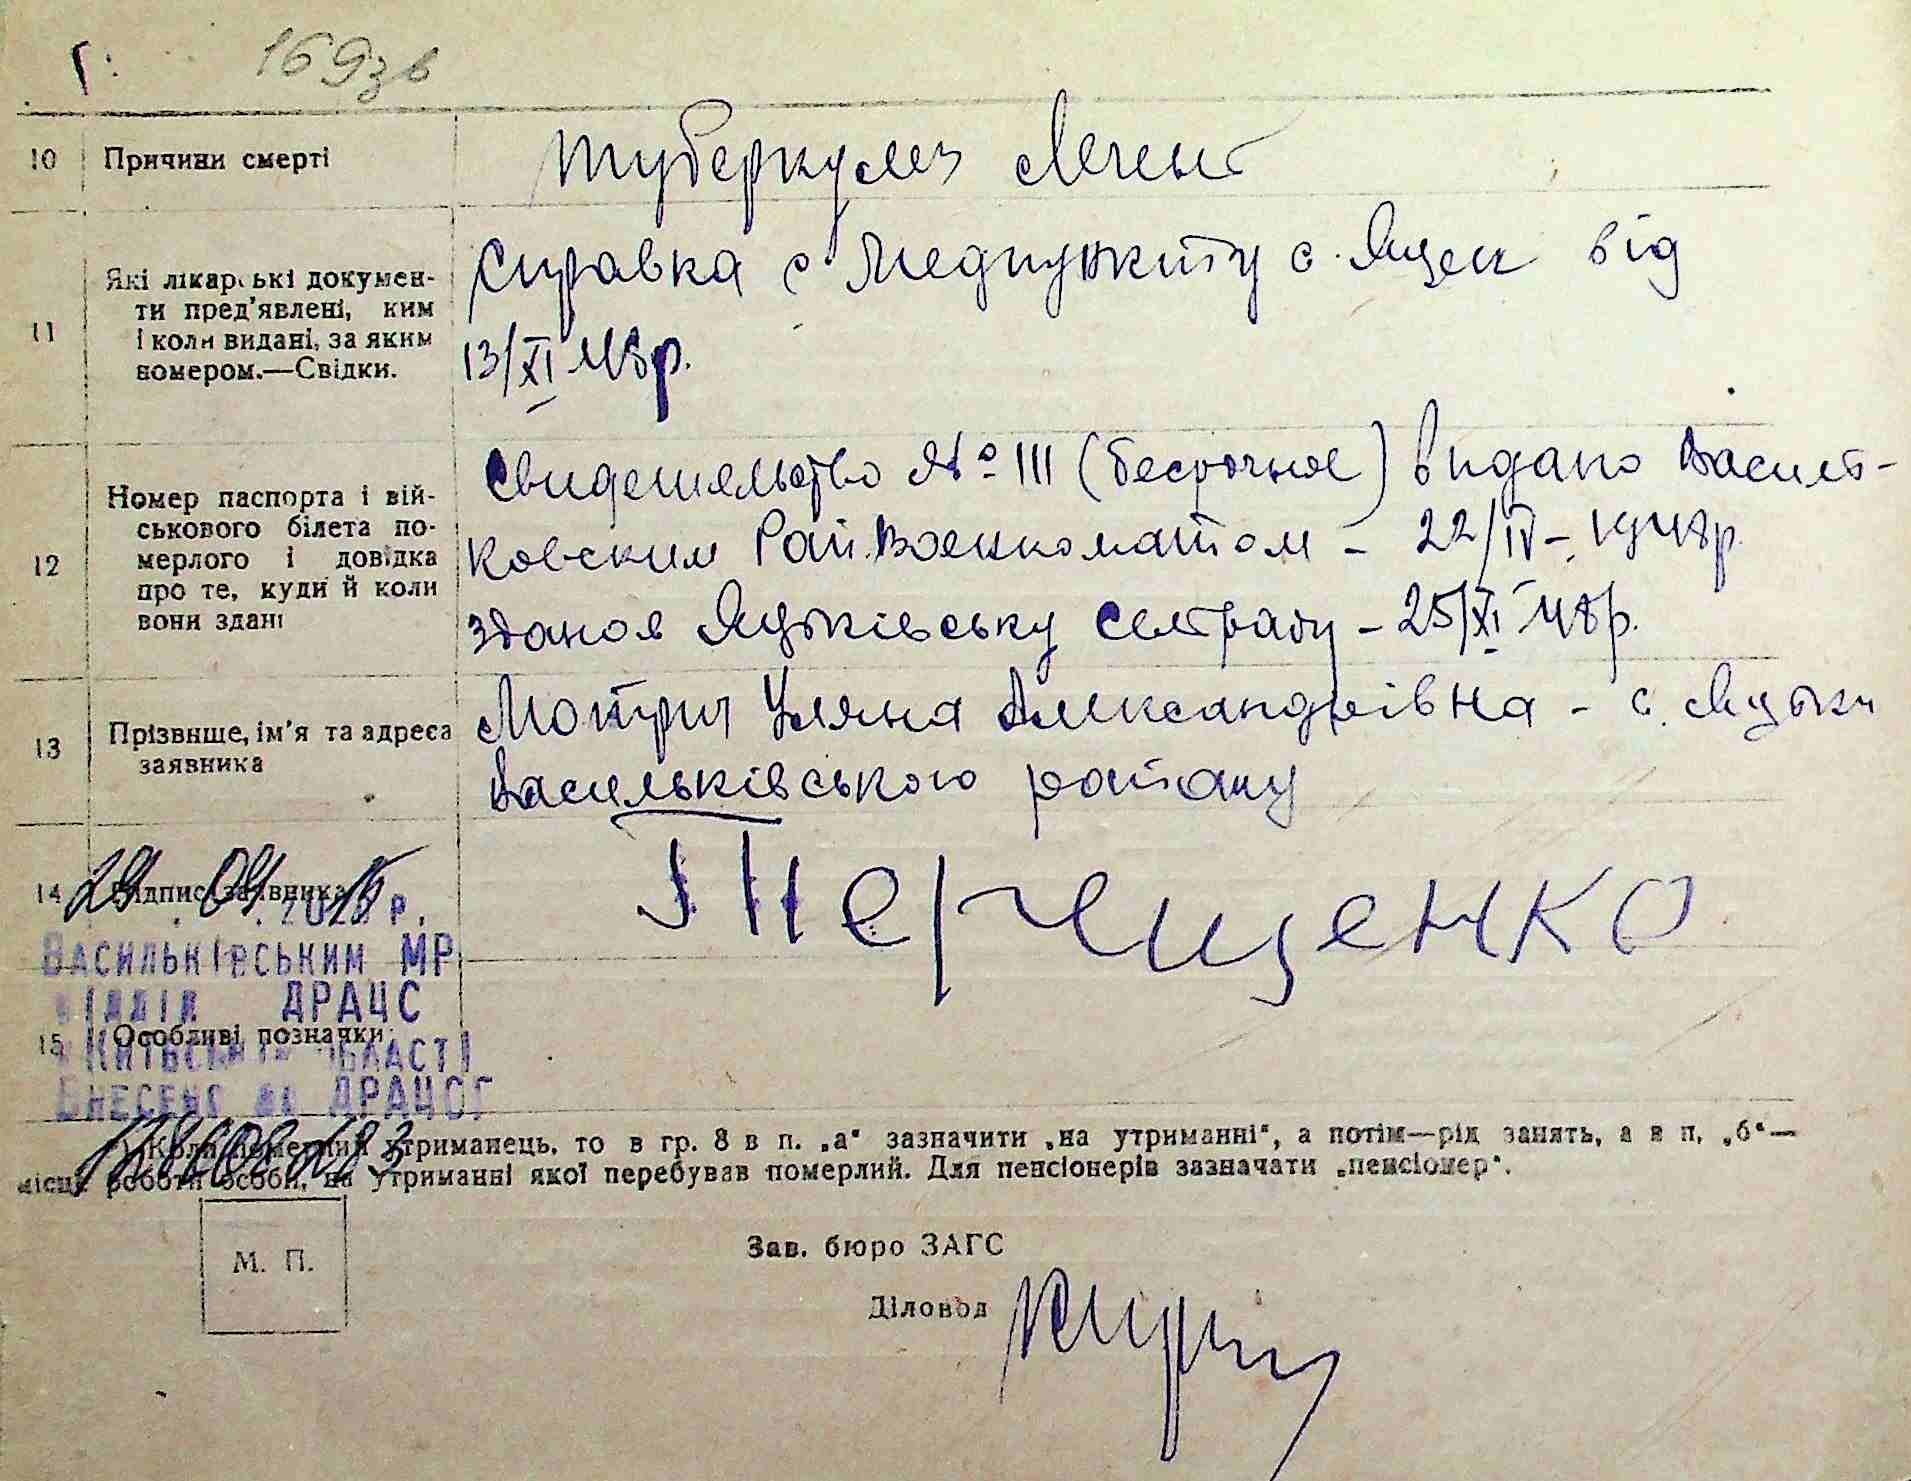 169зв
10 Причини смерті
туберкулез
11 Які лікарські документи пред'явлені, ким і коли видані, за яким номером.—Свідки.
Справка з Медпункту с. від
13/XI 48р.
12 Номер паспорта і військового білета померлого і довідка про те, куди й коли вони здані
Свидетельство № 111 (бесрочное) видано Василь-
ковским Рай.Военкоматом – 22/IV – 1948р.
здано в Яцьківську сельраду – 25/XI 48р.
13 Прізвище, ім'я та адреса заявника
Уляна Александрівна – с. Яцьки
Васильківського району
14 Підпис заявника
24.04.2015р.
ВАСИЛЬКІВСЬКИМ МР
ВІДДІЛ ДРАЦС
15 Особливі позначки
КИЇВСЬКОЇ ОБЛАСТІ
ВНЕСЕНО ДО ДРАЦСГ
Коли померлий утриманець, то в гр. 8 в п. „а“ зазначити „на утриманні“, а потім—рід занять, а в п. „б“—
місце роботи особи, на утриманні якої перебував померлий. Для пенсіонерів зазначати „пенсіонер“.
М. П.
Зав. бюро ЗАГС
Діловод